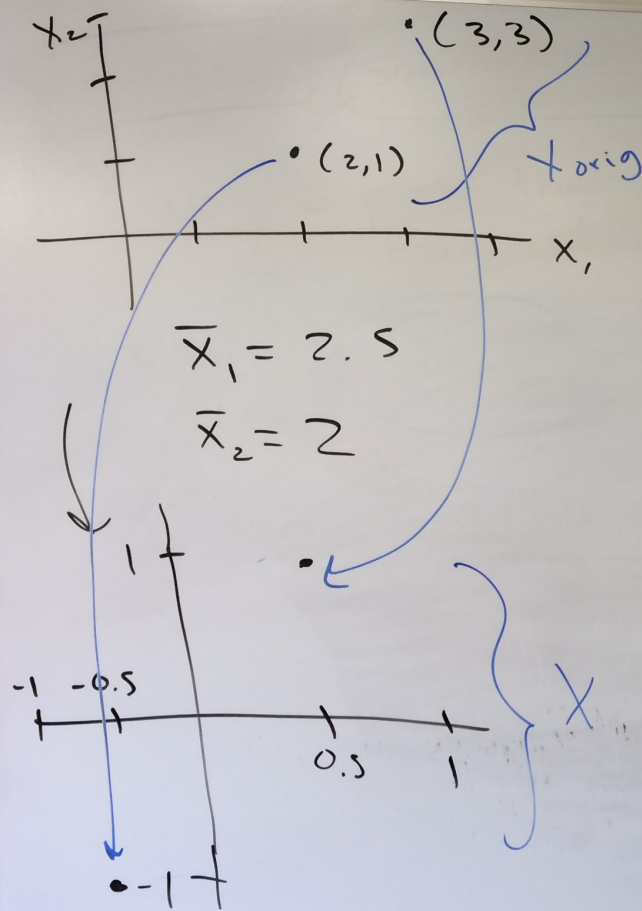 X₂
(3,3)
(2,1)
X orig
X₁
X̄₁ = 2.5
X̄₂ = 2
1
-1 -0.5
X
0.5
1
-1